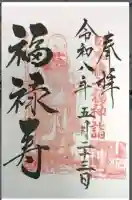 奉拝
令和 年五月二十三日
福禄寿
福神詣